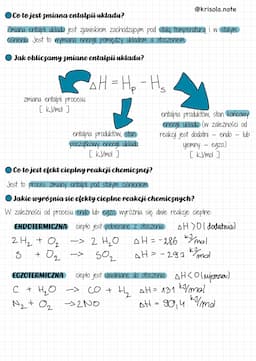 @krisola.note
Co to jest zmiana entalpii układu?
Zmiana entalpii układu jest zjawiskiem zachodzącym pod stałą temperaturą i w stałym
ciśnieniu. Jest to wymiana energii pomiędzy układem a otoczeniem.
Jak obliczamy zmianę entalpii układu?
ΔH = Hp - Hs
zmiana entalpii procesu
[ kJ/mol ]
entalpia produktów, stan
początkowy energii układu
[ kJ/mol ]
entalpia produktów, stan końcowy
energii układu (w zależności od
reakcji jest dodatni - endo - lub
ujemny - egzo)
[ kJ/mol ]
Co to jest efekt cieplny reakcji chemicznej?
Jest to proces zmiany entalpii pod stałym ciśnieniem.
Jakie wyróżnia się efekty cieplne reakcji chemicznych?
W zależności od procesu endo lub egzo wyróżnia się dwie reakcje cieplne:
ENDOTERMICZNA ciepło jest pobierane z otoczenia ΔH>0 (dodatnia)
2H₂ + O₂ → 2H₂O ΔH = -286 kJ/mol
S + O₂ → SO₂ ΔH = -297 kJ/mol
EGZOTERMICZNA ciepło jest oddawane do otoczenia ΔH<0 (ujemna)
C + H₂O → CO + H₂ ΔH = 131 kJ/mol
N₂ + O₂ → 2NO ΔH = 90,4 kJ/mol